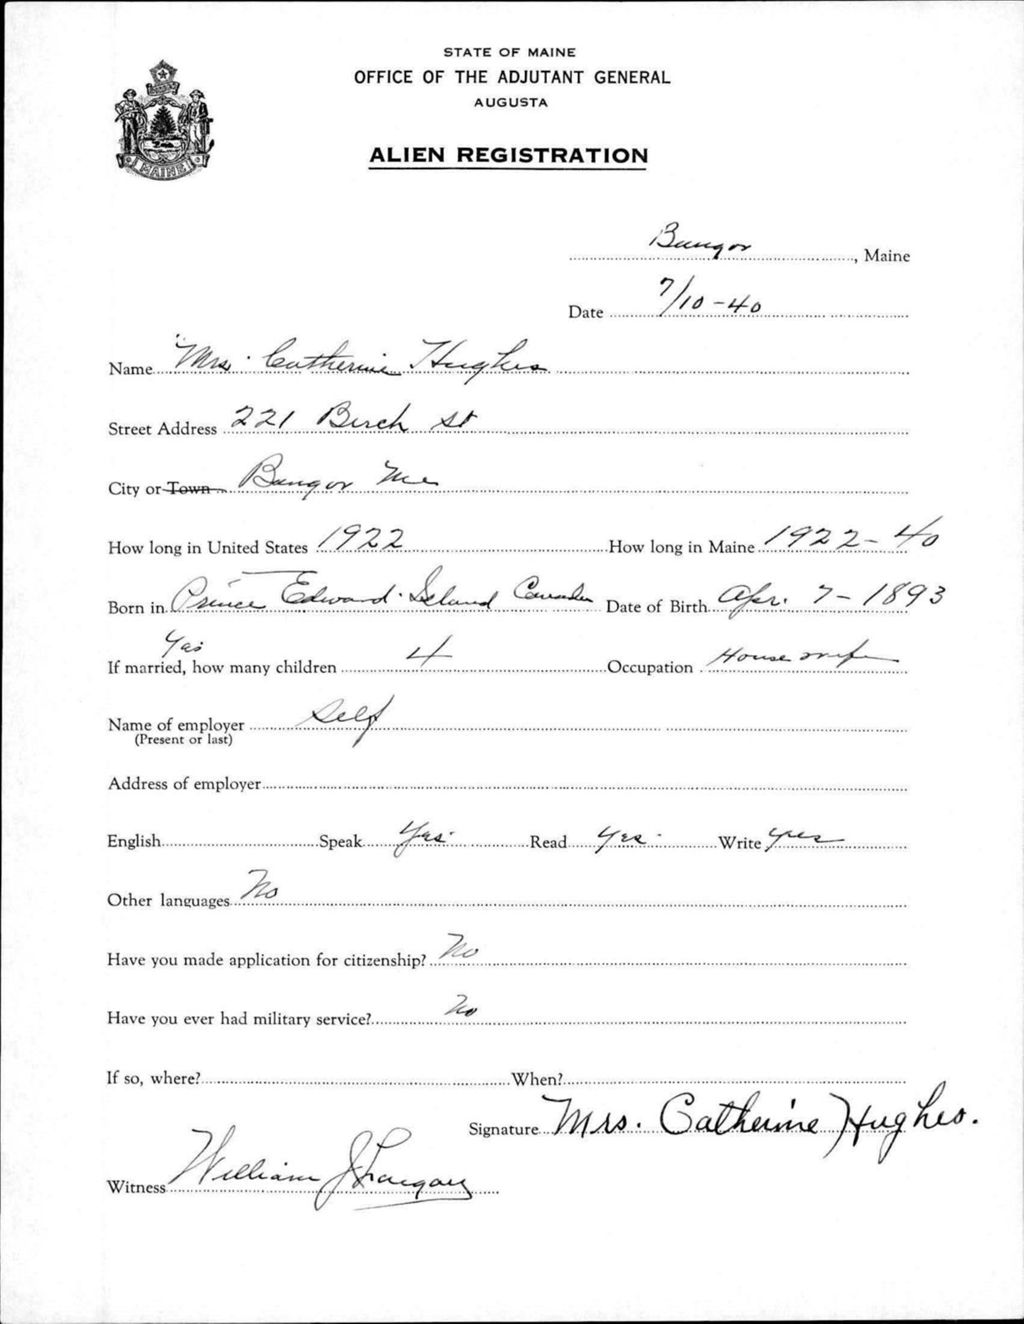 STATE OF MAINE
OFFICE OF THE ADJUTANT GENERAL
AUGUSTA
ALIEN REGISTRATION
MAINE
Bangor, Maine
Date 7/10-40
Name Mrs. Catherine Hughes
Street Address 221 Birch St
City or Town Bangor Me
How long in United States 1922 How long in Maine 1922-40
Born in Prince Edward Island Canada Date of Birth Apr. 7-1893
Yes
If married, how many children 4 Occupation Housewife
Name of employer Self
(Present or last)
Address of employer
English Speak Yes Read Yes Write Yes
Other languages No
Have you made application for citizenship? No
Have you ever had military service? No
If so, where? When?
Signature Mrs. Catherine Hughes.
Witness William J